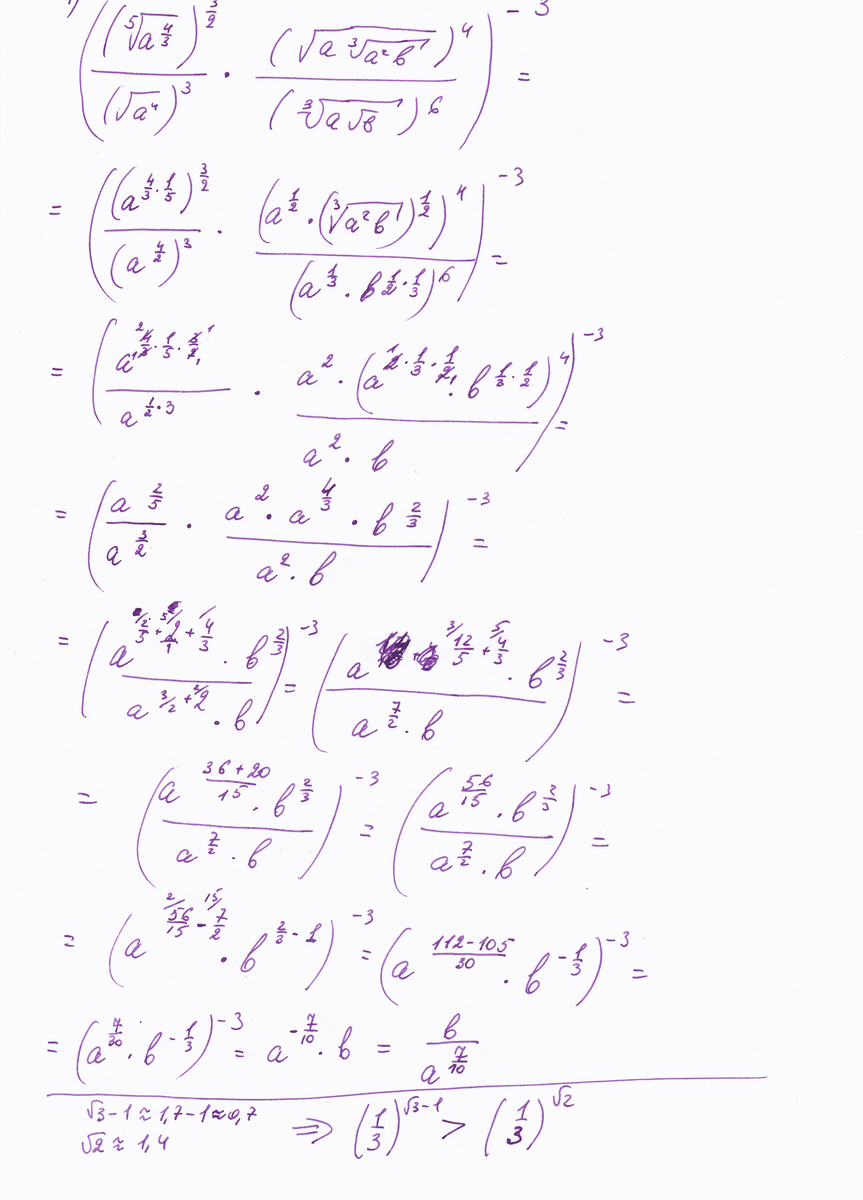 1) (((⁵√(a^(4/3)))^(3/2))/((√(a⁴))³) · ((√(a ³√(a²b)))⁴)/((³√(a√b))⁶))^(-3) =
= (((a^(4/3·1/5))^(3/2))/((a^(4/2))³) · ((a^(1/2)·(³√(a²b))^(1/2))⁴)/((a^(1/3)·b^(1/2·1/3))⁶))^(-3) =
= ((a^(4/3·1/5·3/2))/(a^(1/2·3)) · (a²·(a^(2·1/3·1/2)·b^(1/3·1/2))⁴)/(a²·b))^(-3) =
= ((a^(2/5))/(a^(3/2)) · (a²·a^(4/3)·b^(2/3))/(a²·b))^(-3) =
= ((a^(2/5+2/1+4/3)·b^(2/3))/(a^(3/2+2)·b))^(-3) = ((a^(12/5+4/3)·b^(2/3))/(a^(7/2)·b))^(-3) =
= ((a^((36+20)/15)·b^(2/3))/(a^(7/2)·b))^(-3) = ((a^(56/15)·b^(2/3))/(a^(7/2)·b))^(-3) =
= (a^(56/15-7/2)·b^(2/3-1))^(-3) = (a^((112-105)/30)·b^(-1/3))^(-3) =
= (a^(7/30)·b^(-1/3))^(-3) = a^(-7/10)·b = b/(a^(7/10))
√3-1≈1,7-1≈0,7 ⇒ (1/3)^(√3-1) > (1/3)^(√2)
√2≈1,4